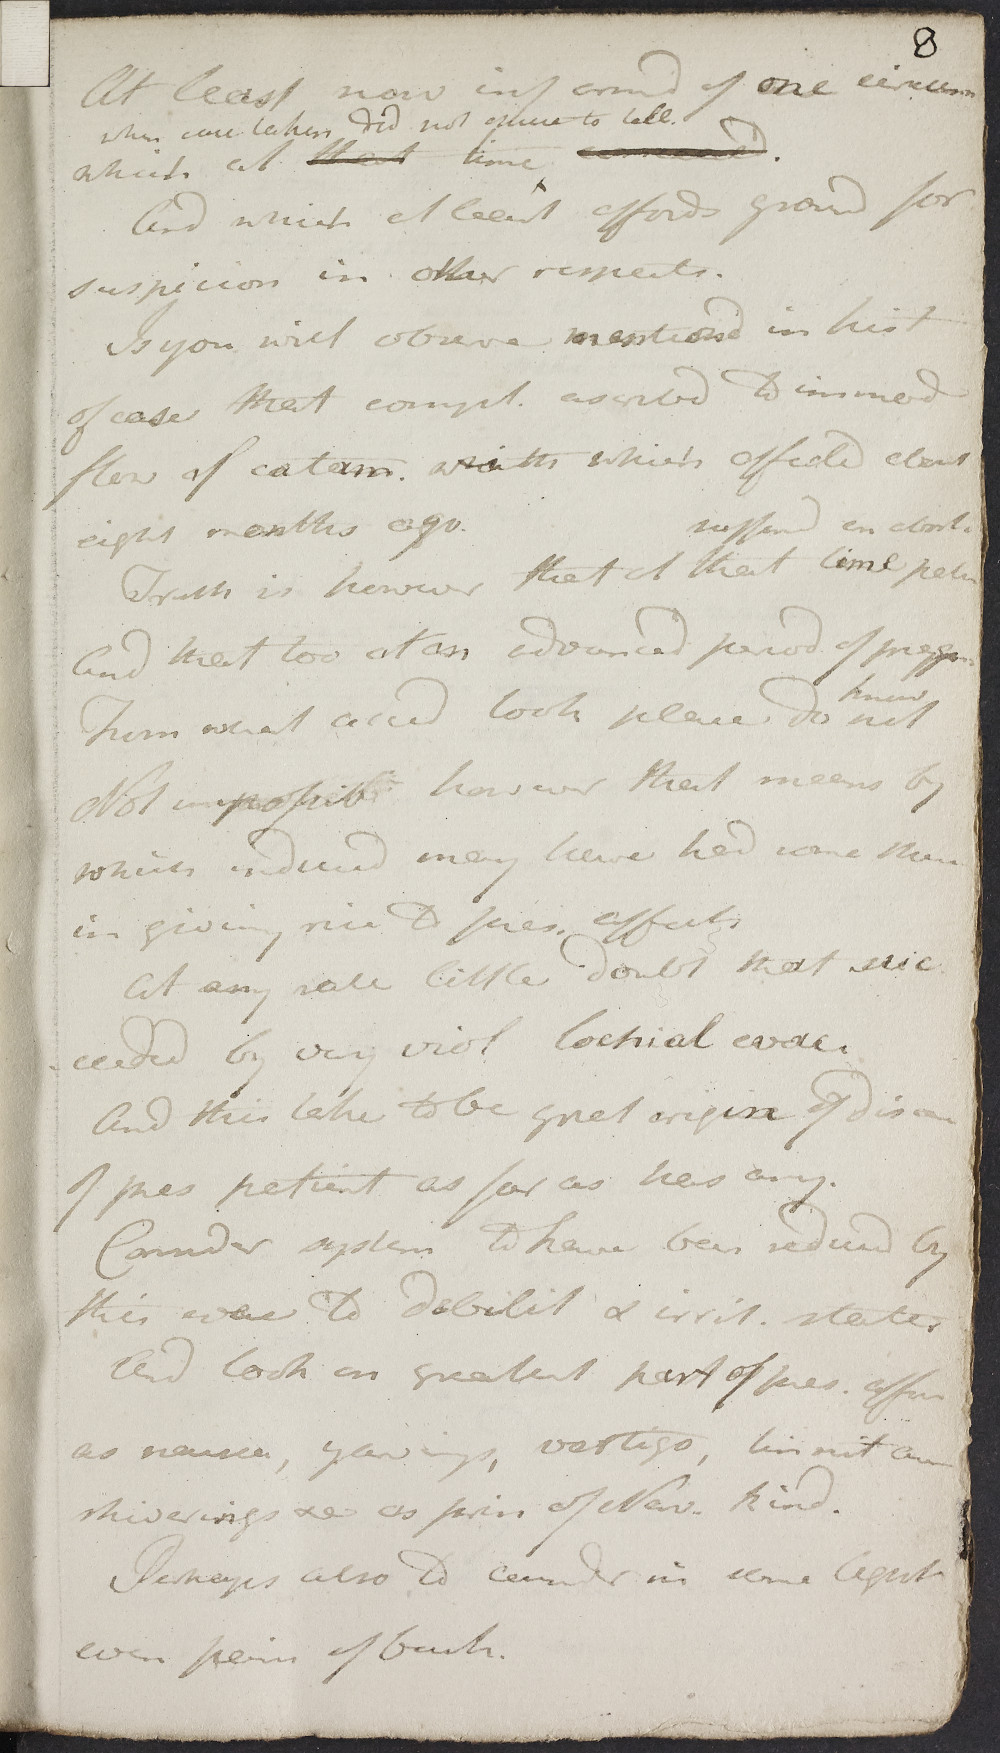 8
At least now informd of one circum
when case taken did not chuse to tell.
which at that time conceald.
And which at least affords ground for
suspicion in other respects.
Is you will observe mentiond in hist
of case that compl. ascribed to immod
flow of catam. with which affected about
eight months ago.
sufferd an abort.
Truth is however that at that time
And that too at an advanced period of pregn
From what accid took place do not
know
Not impossib however that means by
which induced may have had some share
in giving rise to pres. affects
At any rate little doubt that suc
ceeded by very viol lochial evac.
And this take to be great origin of disease
of pres patient as far as has any.
Consider system to have been reduced by
this evac to debilit & irrit. state
And look on greatest part of pres. affec
as nausea, yawnings, vertigo, tinnit aur
shiverings &c as prin of Nerv. kind.
Perhaps also to consider in same light
even pain of back.